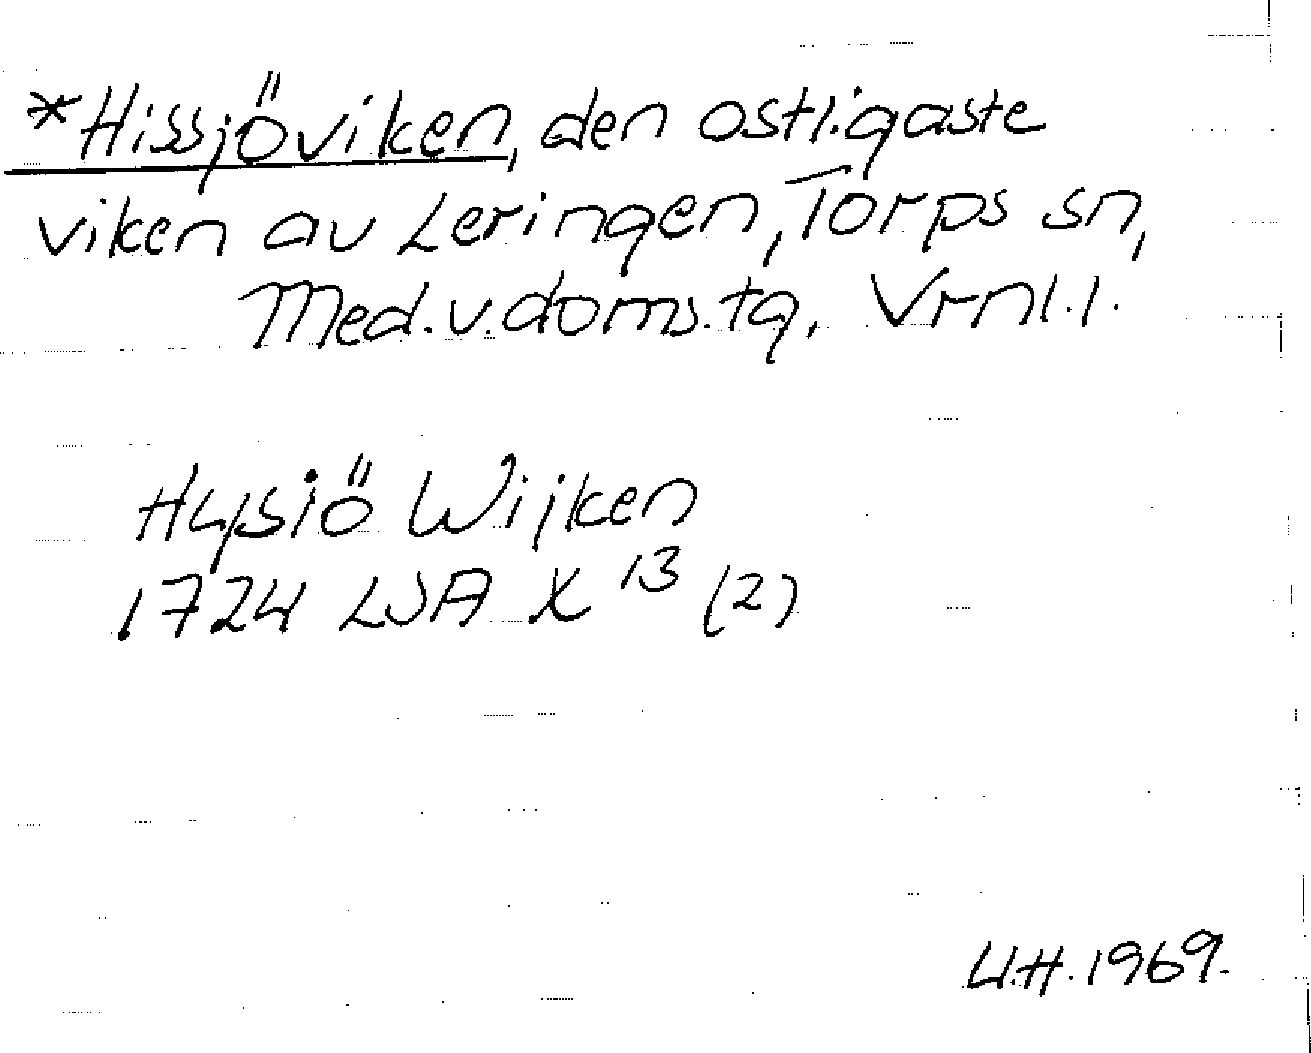 *Hissjöviken, den ostligaste
viken av Leringen, Torps sn,
Med.v.doms.tg, Vrnl.l.
Hysiö Wijken
1724 LSA X 13 (2)
U.H. 1969.